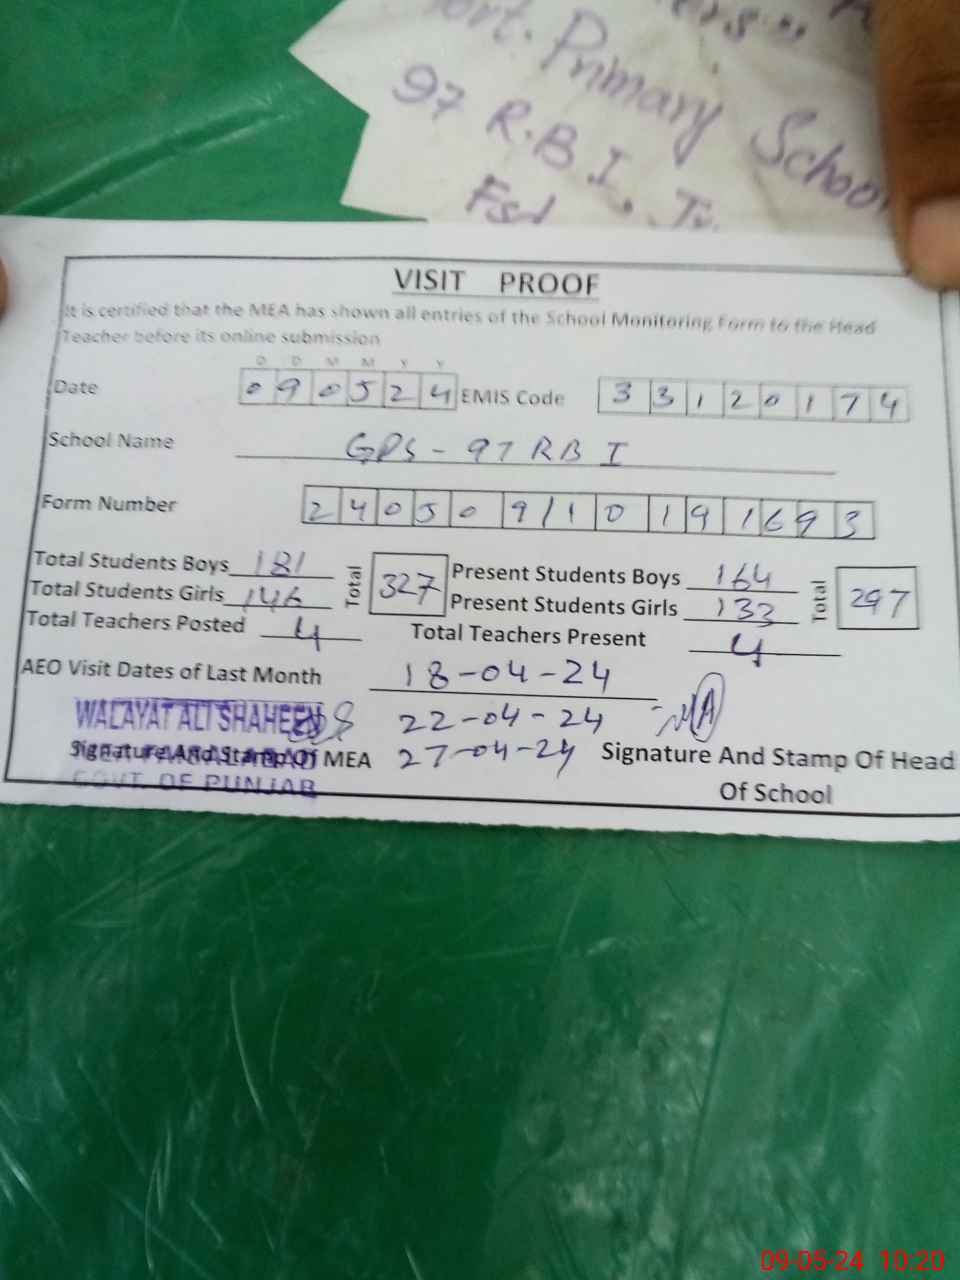 Primary School
97 R.B I.
Fsd
VISIT PROOF
It is certified that the MEA has shown all entries of the School Monitoring Form to the Head
Teacher before its online submission
D D M M Y Y
Date 090524 EMIS Code 33120174
School Name GPS - 97 RB I
Form Number 240509/10191693
Total Students Boys 181 Total 327 Present Students Boys 164 Total 297
Total Students Girls 146 Present Students Girls 133
Total Teachers Posted 4 Total Teachers Present 4
AEO Visit Dates of Last Month 18-04-24
WALAYAT ALI SHAHEEN 22-04-24
Signature And Stamp Of MEA 27-04-24 Signature And Stamp Of Head
GOVT. OF PUNJAB Of School
09-05-24 10:20